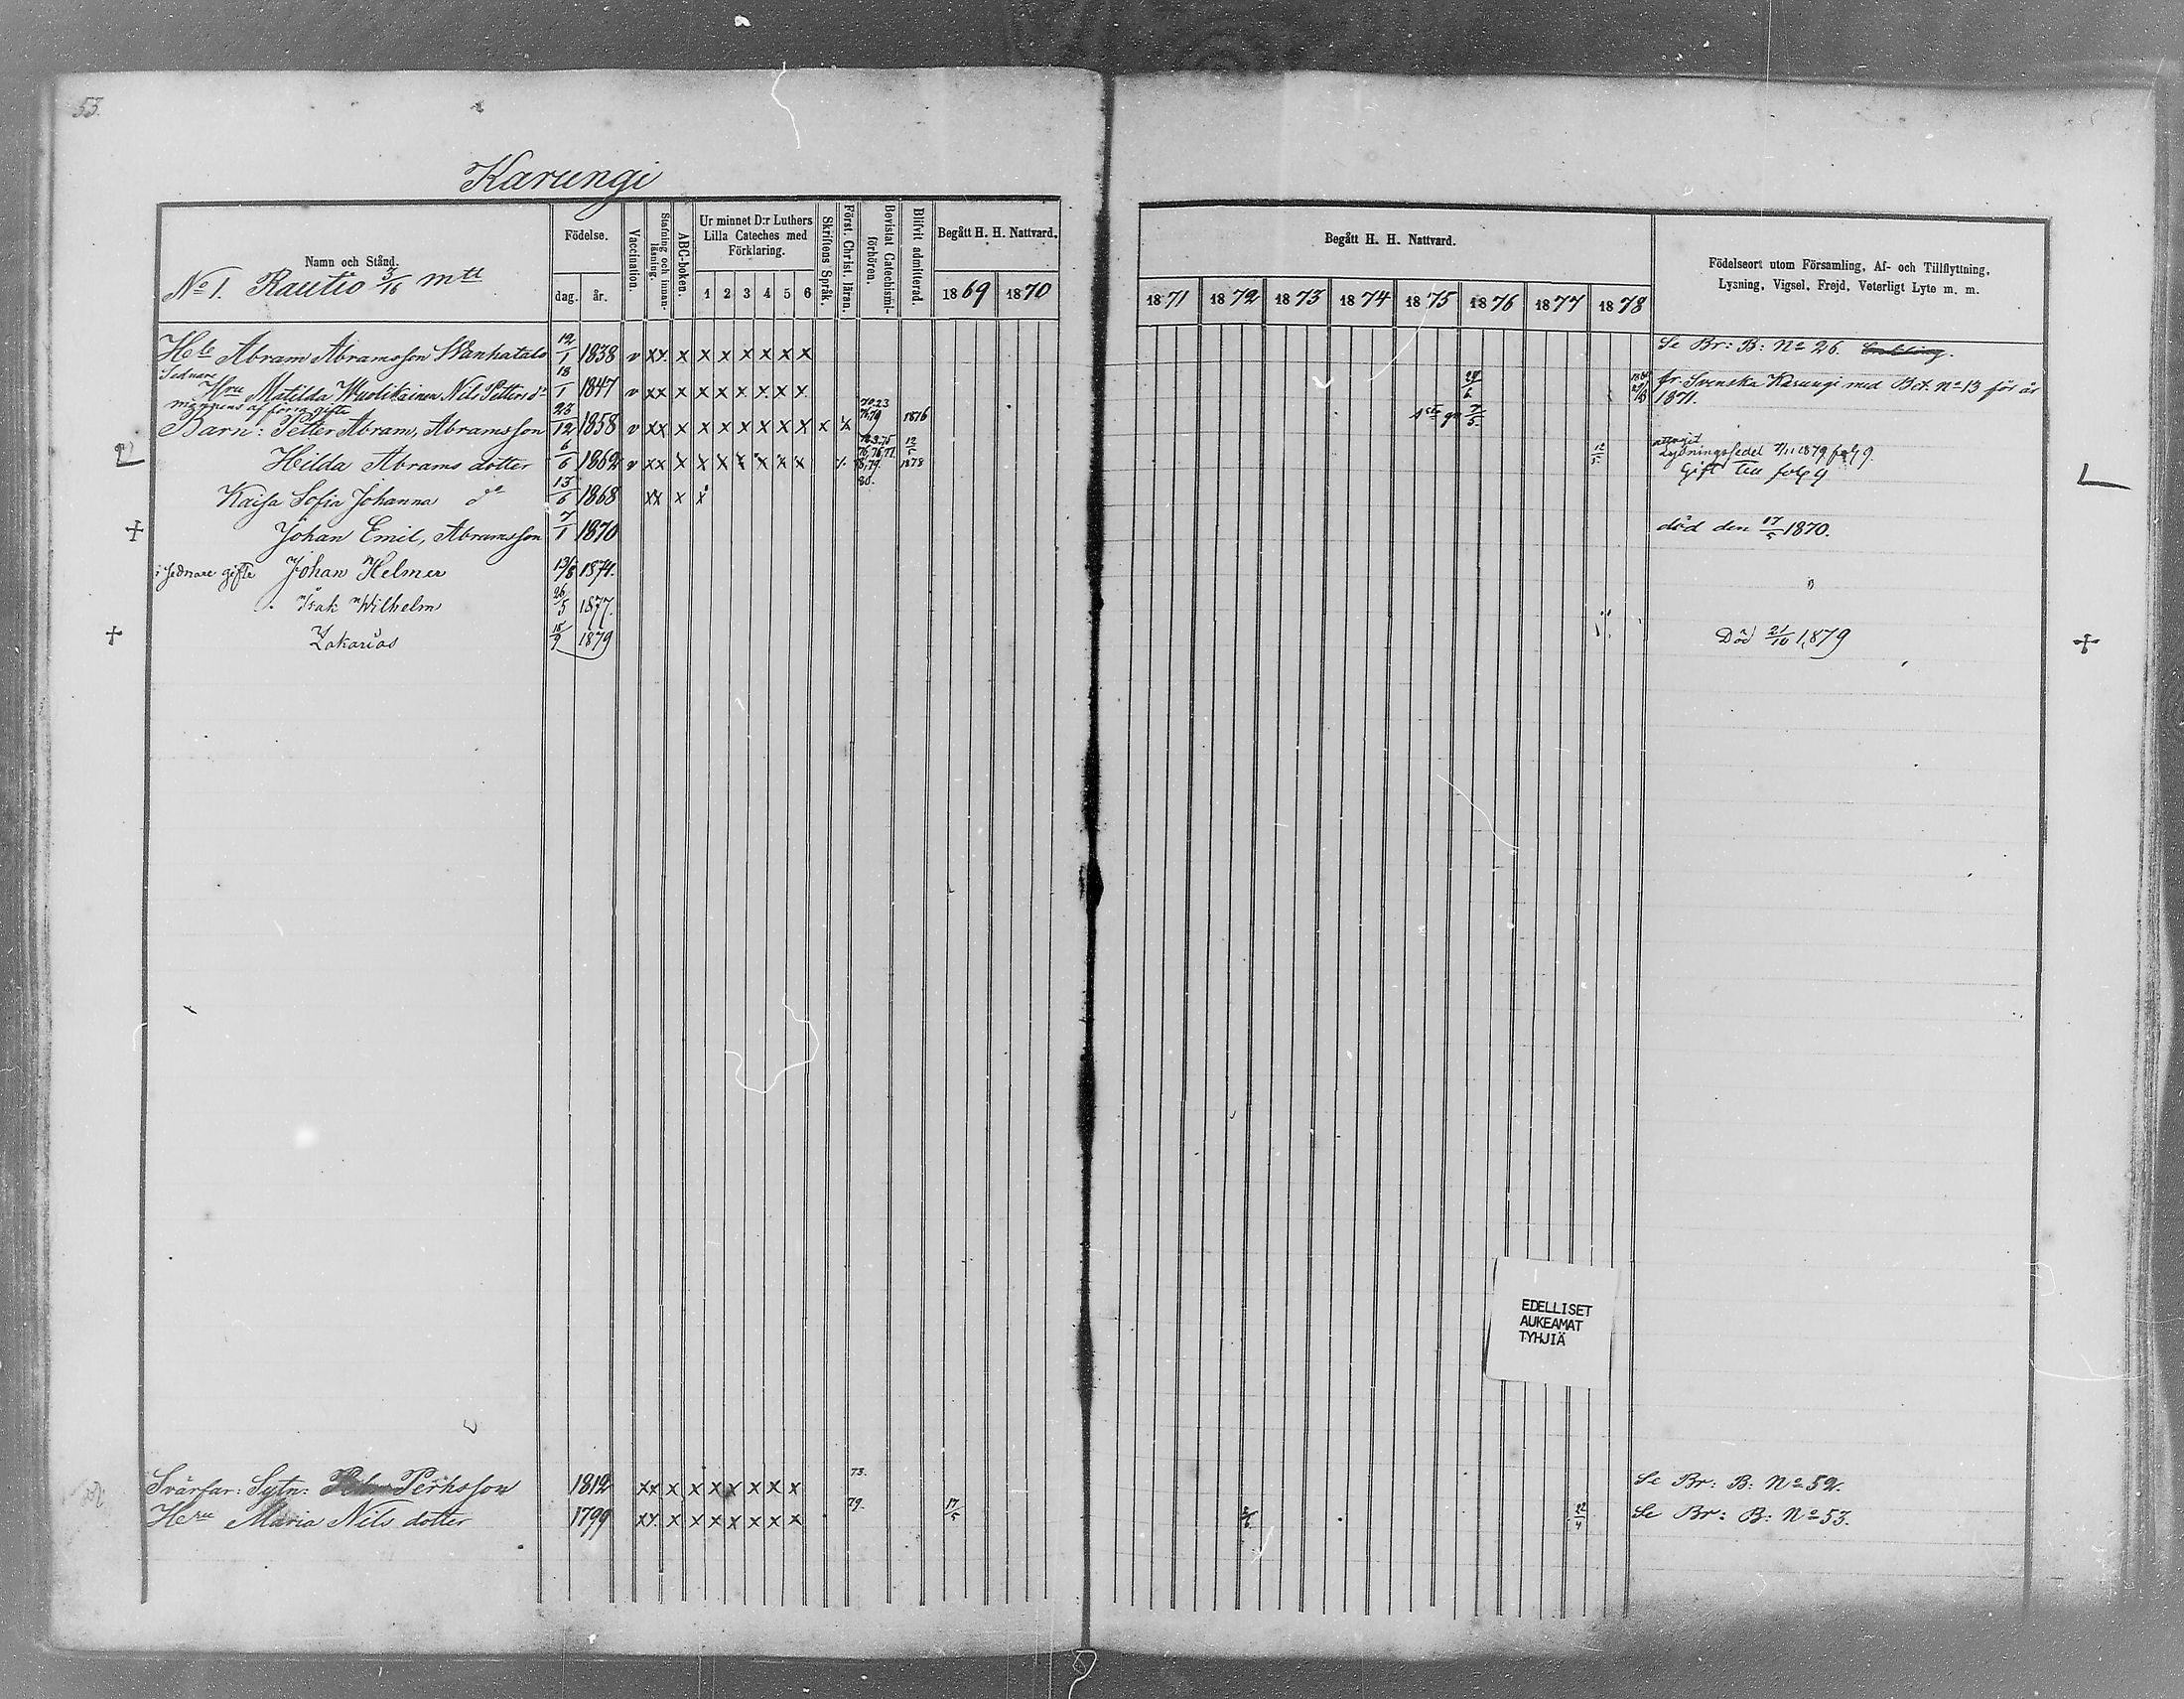 53.
Karungi
Namn och Stånd.
No 1. Rautio 3/16 mtl
Födelse.
dag. år.
Vaccination.
Stafning och innan-läsning.
ABC-boken.
Ur minnet D:r Luthers
Lilla Cateches med
Förklaring.
1 2 3 4 5 6
Skriftens Språk.
Först. Christ. läran.
Bevistat Catechismi-förhören.
Blifvit admitterad.
Begått H. H. Nattvard.
1869 1870
Begått H. H. Nattvard.
1871 1872 1873 1874 1875 1876 1877 1878
Födelseort utom Församling, Af- och Tillflyttning,
Lysning, Vigsel, Frejd, Veterligt Lyte m. m.
Abram Abramsson Wanhatalo 12/1 1838 v xx x x x x x x x Se Br: B: No 26.
Sednare
Hru Matilda Wuolikainen Nils Petters dr 18/1 1847 v xx x x x x x x x 24/6 fr Svenska Karungi med Bet. No 13 för år
1871.
af förra gifte
Barn: Petter Abram, Abramsson 23/12 1858 v xx x x x x x x x x 1876 1sta gn 7/5
Hilda Abrams dotter 6/6 1862 v xx x x x x x x x 12/5 1878 12/5 Lysningssedel 1879
Gift till
Kajsa Sofia Johanna dr 13/6 1868 xx x x
+ Johan Emil, Abramsson 7/1 1870 död den 17/5 1870.
i sednare gifte Johan Helmer 13/8 1874.
Isak Wilhelm 26/5 1877.
+ Zakarias 15/9 1879 Död 21/10 1879 +
EDELLISET
AUKEAMAT
TYHJIÄ
Svärfar: Sytn: Pehrsson 1812 xx x x x x x x x 73. Se Br: B: No 52.
Maria Nils dotter 1799 xx x x x x x x x 79. 17/5 22/4 Se Br: B: No 53.